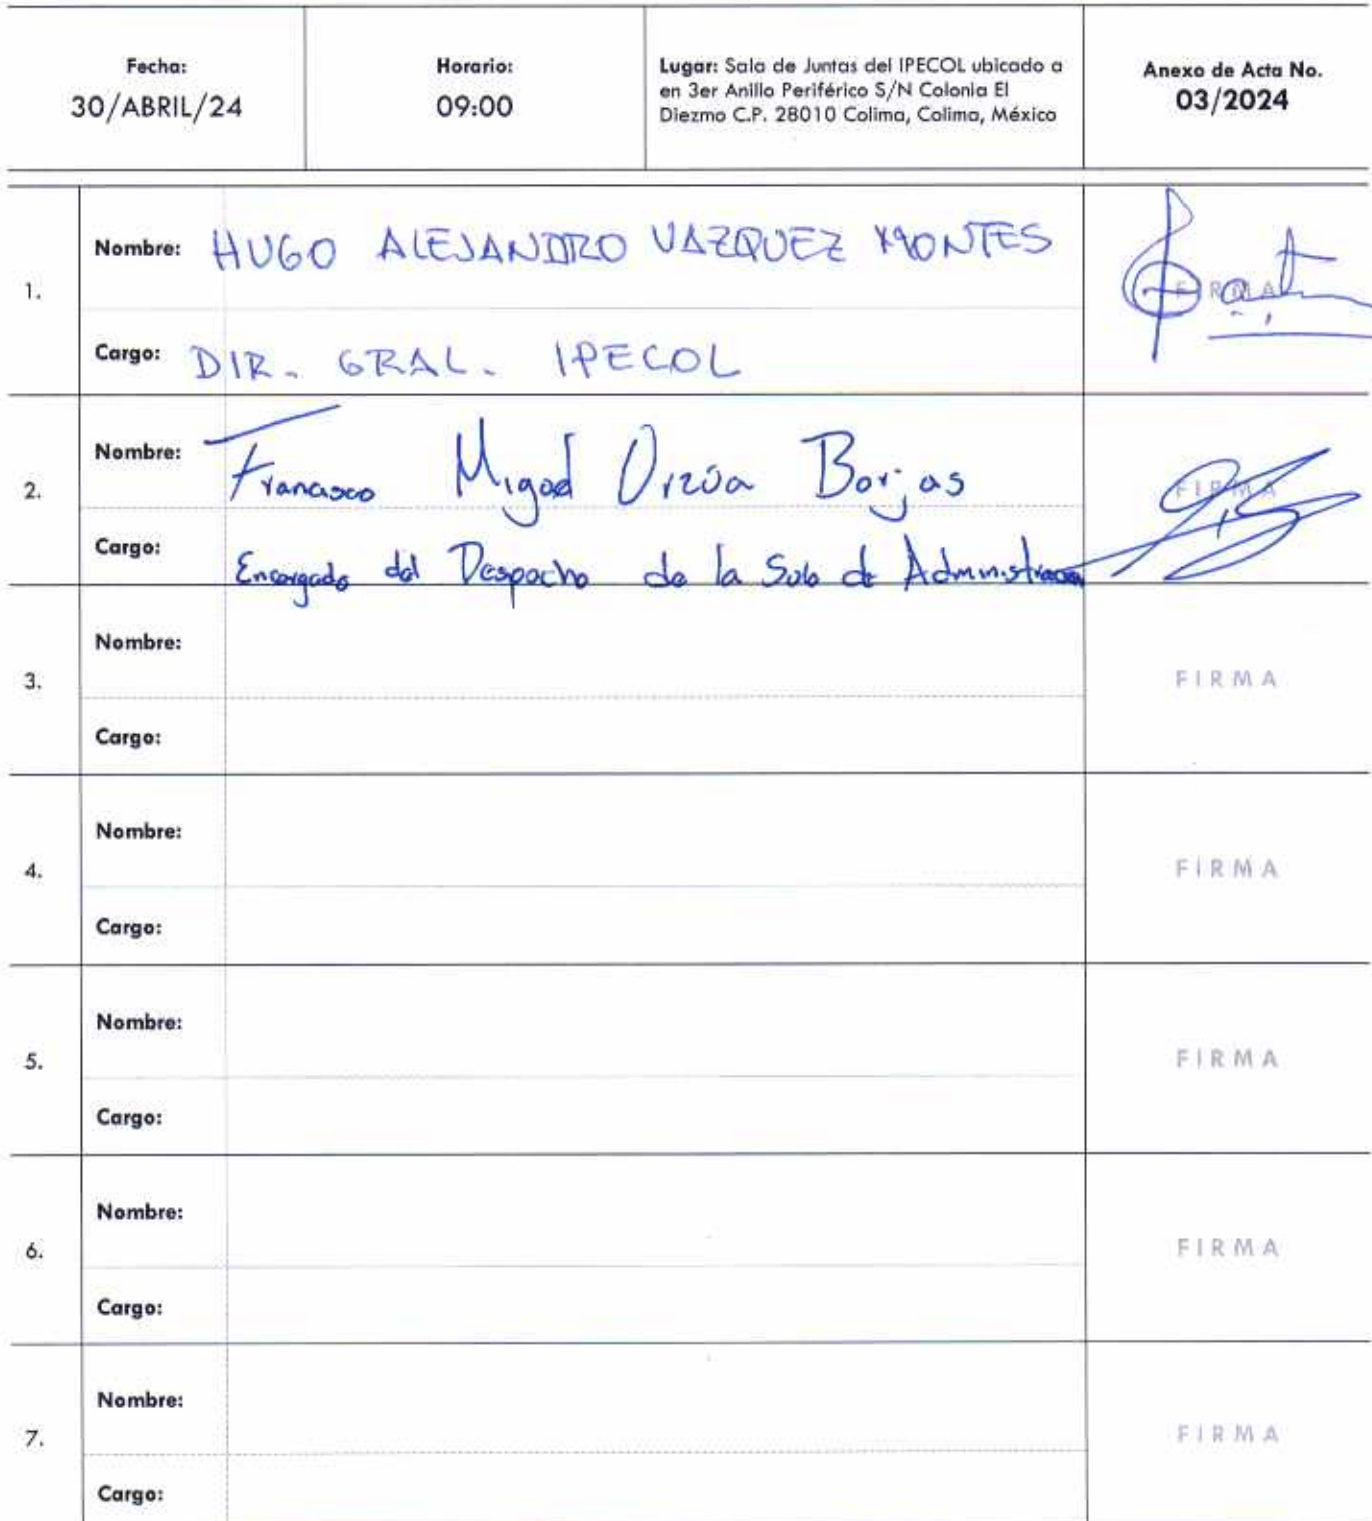 Fecha:
30/ABRIL/24
Horario:
09:00
Lugar: Sala de Juntas del IPECOL ubicado a
en 3er Anillo Periférico S/N Colonia El
Diezmo C.P. 28010 Colima, Colima, México
Anexo de Acta No.
03/2024
1.
Nombre: HUGO ALEJANDRO VAZQUEZ MONTES
Cargo: DIR. GRAL. IPECOL
FIRMA
2.
Nombre: Francisco Miguel Orzúa Borjas
Cargo: Encargado del Despacho de la Sub de Administracion
FIRMA
3.
Nombre:
Cargo:
FIRMA
4.
Nombre:
Cargo:
FIRMA
5.
Nombre:
Cargo:
FIRMA
6.
Nombre:
Cargo:
FIRMA
7.
Nombre:
Cargo:
FIRMA